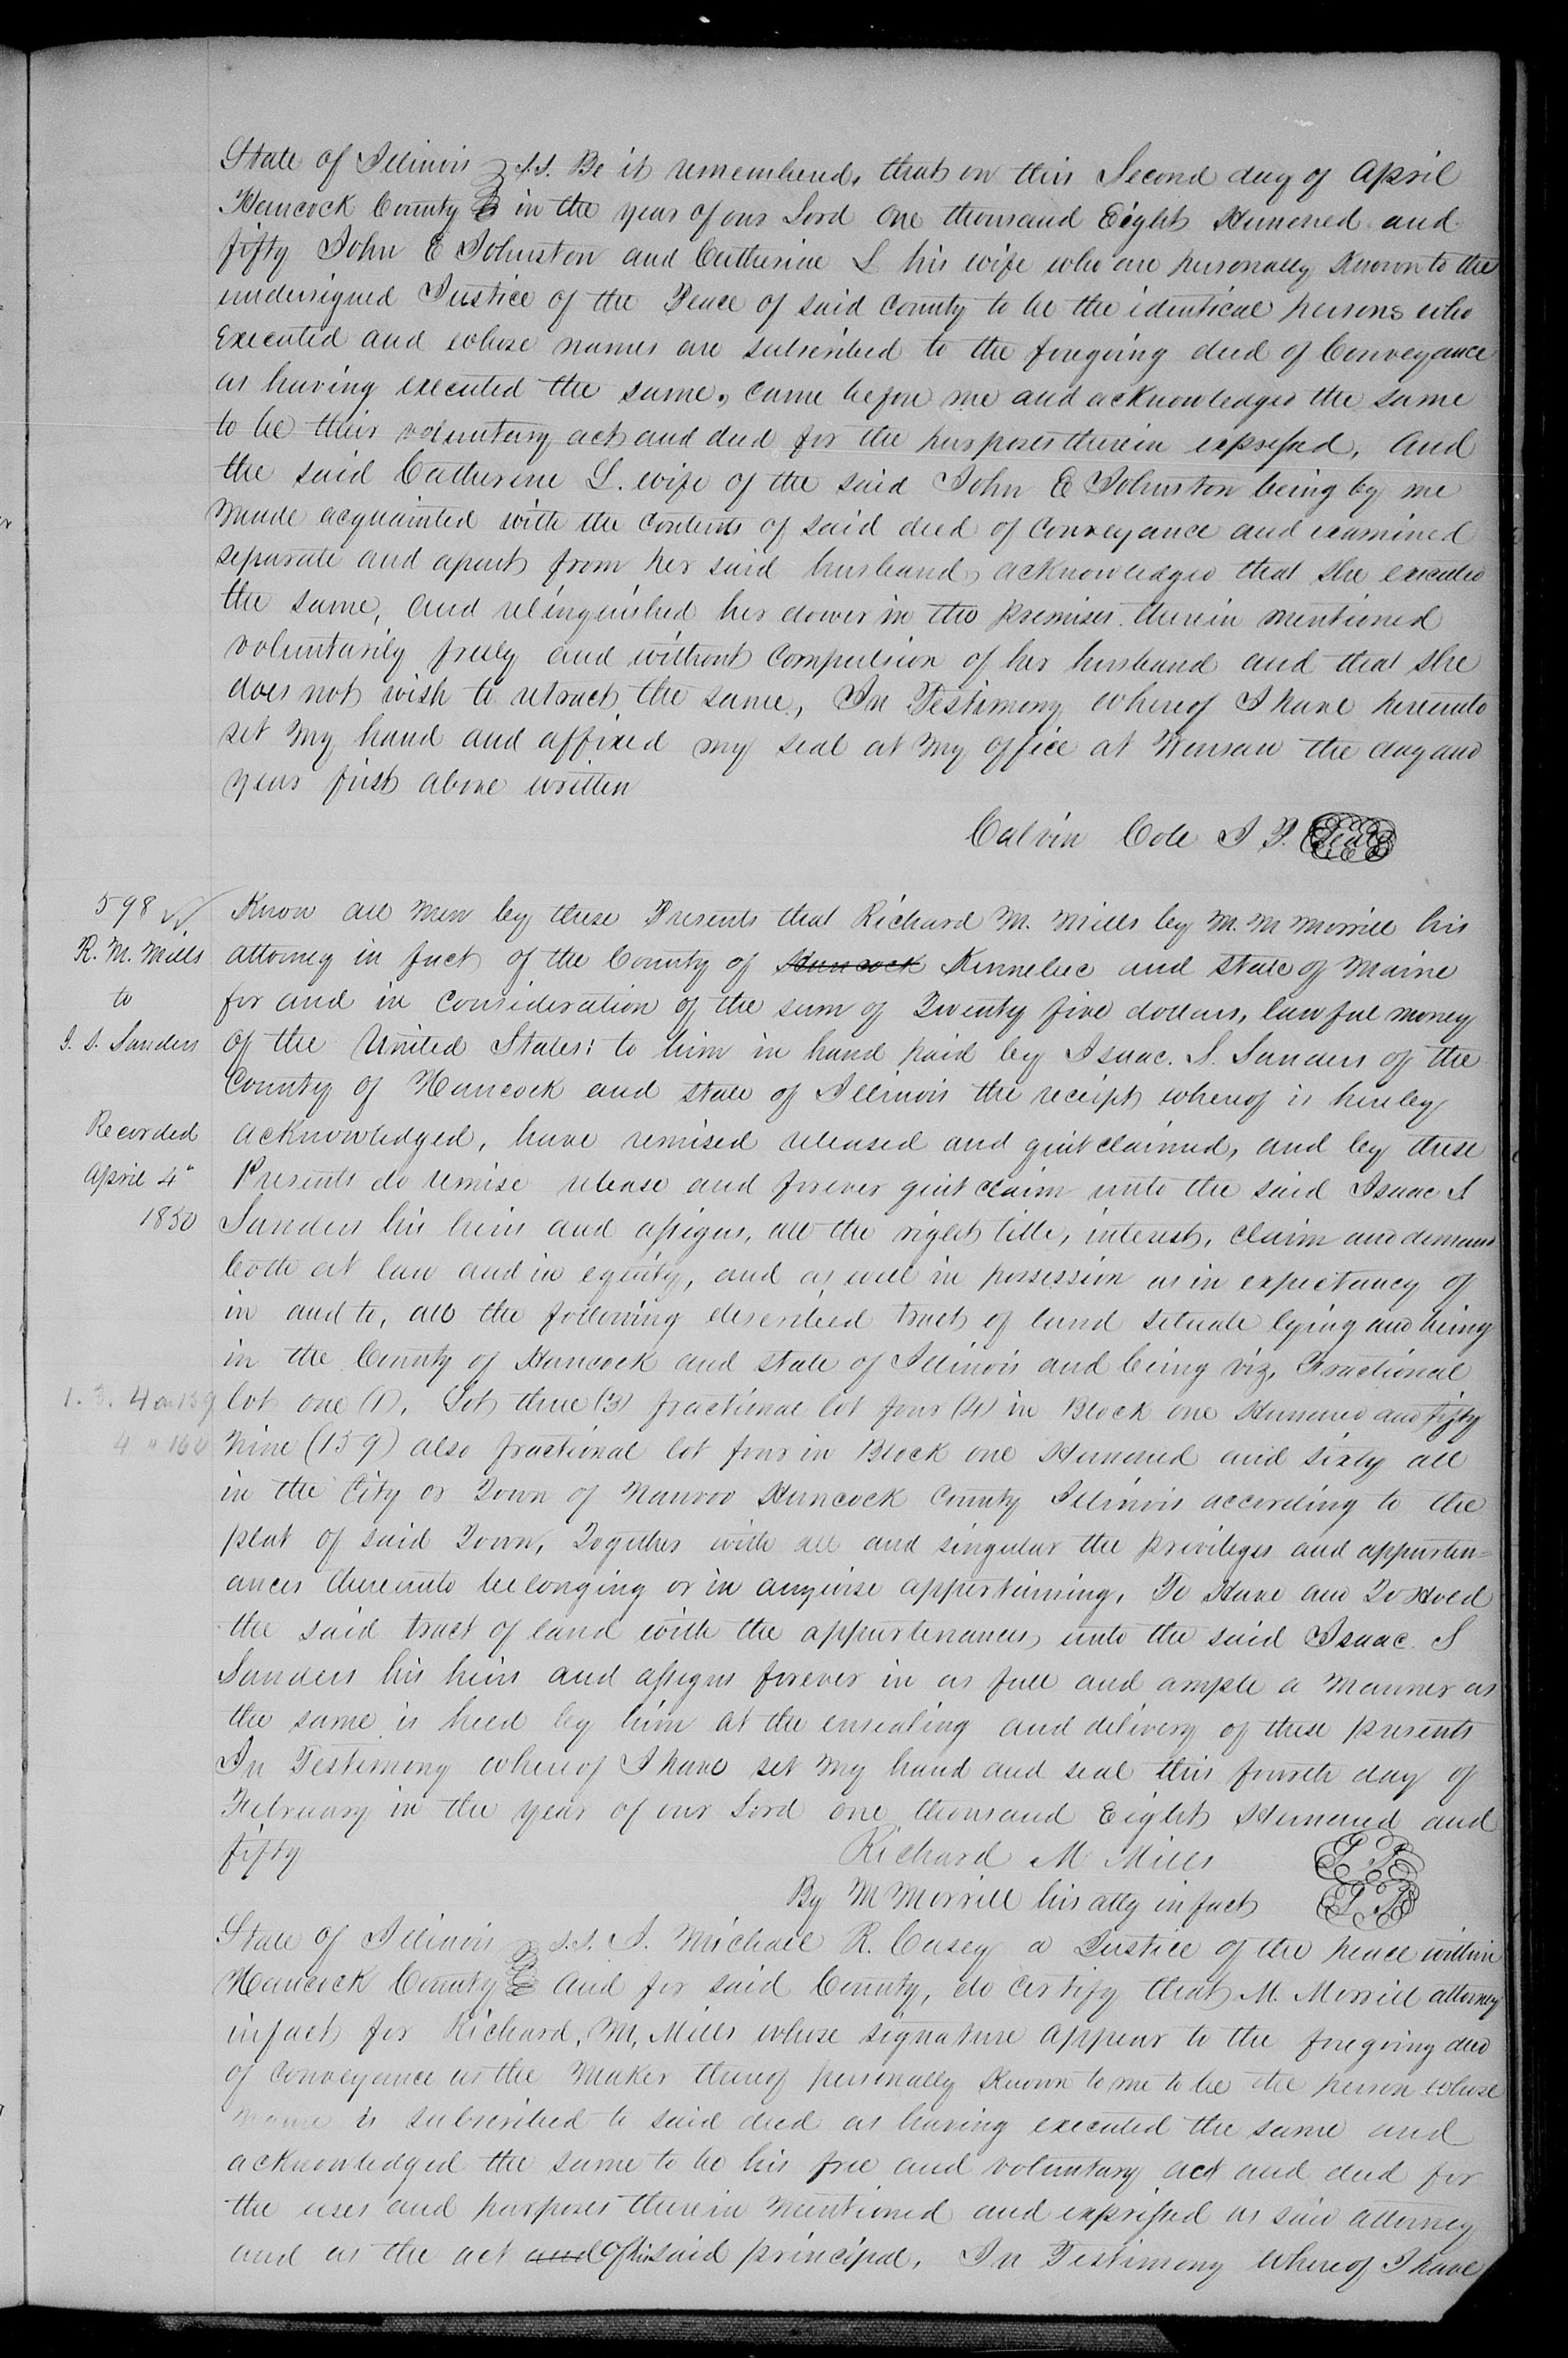 State of Illinois } S.S. Be it remembered, that on this Second day of April
Hancock County } in the year of our Lord One thousand Eight Hundred and
fifty John E Johnston and Catherine L his wife who are personally Known to the
undersigned Justice of the Peace of said County to be the identical persons who
Executed and whose names are subscribed to the foregoing deed of Conveyance
as having executed the same, came before me and acknowledged the same
to be their voluntary act and deed for the purposes therein expressed, And
the said Catherine L. wife of the said John E Johnston being by me
Made acquainted with the Contents of said deed of Conveyance and examined
separate and apart from her said husband, acknowledged that she executed
the same, and relinquished her dower in the premises therein mentioned
voluntarily freely and without Compulsion of her husband and that she
does not wish to retract the same, In Testimony whereof I have hereunto
set my hand and affixed my seal at my office at Warsaw the day and
year first above written
Calvin Cole J P. Seal
598
R. M. Mills
to
I. S. Sanders
Recorded
April 4"
1850
Know all Men by these Presents that Richard M. Mills by M. M Morrill his
attorney in fact of the County of Hancock Kennebec and State of Maine
for and in Consideration of the sum of Twenty five dollars, lawful money
of the United States: to him in hand paid by Isaac. S. Sanders of the
County of Hancock and state of Illinois the receipt whereof is hereby
acknowledged, have remised released and quit claimed, and by these
Presents do remise release and forever quit claim unto the said Isaac S
Sanders his heirs and assigns, all the right title, interest, claim and demand
both at law and in equity, and as well in possession as in expectancy of
in and to, all the following described tract of land situate lying and being
in the County of Hancock and state of Illinois and being viz, Fractional
1. 3. 4 on 159 lot one (1), Lot three (3) fractional lot four (4) in Block one Hundred and fifty
4 " 160 Nine (159) also fractional lot four in Block one Hundred and sixty all
in the City or Town of Nauvoo Hancock County Illinois according to the
plat of said Town, Together with all and singular the privileges and appurten=
ances thereunto belonging or in anywise appertaining, To Have and To Hold
the said tract of land with the appurtenances unto the said Isaac. S
Sanders his heirs and assigns forever in as full and ample a manner as
the same is held by him at the ensealing and delivery of these presents
In Testimony whereof I have set my hand and seal this fourth day of
February in the year of our Lord one thousand Eight Hundred and
fifty
Richard M Mills
By M Morrill his atty in fact
State of Illinois } S.S. I. Michael R. Casey a Justice of the peace within
Hancock County } and for said County, do certify that M. Morrill attorney
in fact for Richard, M, Mills whose signature appear to the foregoing deed
of conveyance as the Maker thereof personally Known to me to be the person whose
name is subscribed to said deed as having executed the same and
acknowledged the same to be his free and voluntary act and deed for
the uses and purposes therein mentioned and expressed as said attorney
and as the act and of his said principal. In Testimony whereof I have